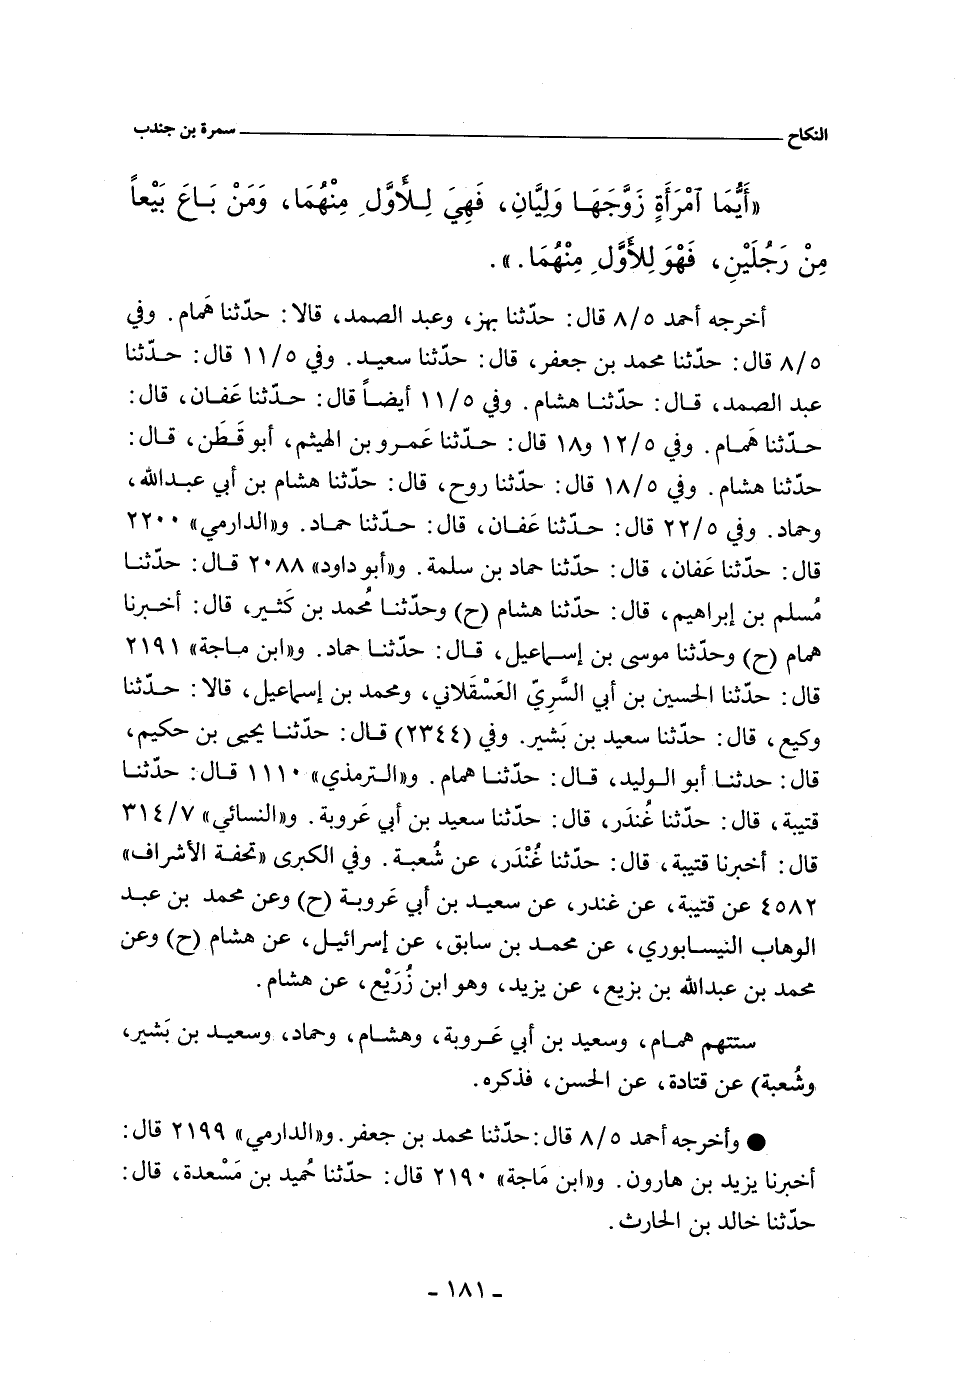 النكاح ــــــــــــ سمرة بن جندب
«أَيُّمَا ٱمْرَأَةٍ زَوَّجَهَا وَلِيَّانِ، فَهِيَ لِلأَوَّلِ مِنْهُمَا، وَمَنْ بَاعَ بَيْعاً
مِنْ رَجُلَيْنِ، فَهْوَ لِلأَوَّلِ مِنْهُمَا.».
أخرجه أحمد ٨/٥ قال: حدّثنا بهز، وعبد الصمد، قالا: حدّثنا هَمام. وفي
٨/٥ قال: حدّثنا محمد بن جعفر، قال: حدّثنا سعيد. وفي ١١/٥ قال: حدّثنا
عبد الصمد، قال: حدّثنا هشام. وفي ١١/٥ أيضاً قال: حدّثنا عَفان، قال:
حدّثنا هَمام. وفي ١٢/٥ و١٨ قال: حدّثنا عَمرو بن الهيثم، أبو قَطَن، قال:
حدّثنا هشام. وفي ١٨/٥ قال: حدّثنا روح، قال: حدّثنا هشام بن أبي عبدالله،
وحماد. وفي ٢٢/٥ قال: حدّثنا عَفان، قال: حدّثنا حماد. و«الدارمي» ٢٢٠٠
قال: حدّثنا عَفان، قال: حدّثنا حماد بن سلمة. و«أبو داود» ٢٠٨٨ قال: حدّثنا
مُسلم بن إبراهيم، قال: حدّثنا هشام (ح) وحدّثنا مُحمد بن كَثير، قال: أخبرنا
همام (ح) وحدّثنا موسى بن إسماعيل، قال: حدّثنا حماد. و«ابن ماجة» ٢١٩١
قال: حدّثنا الحسين بن أبي السَّرِيّ العَسْقَلاني، ومحمد بن إسماعيل، قالا: حدّثنا
وكيع، قال: حدّثنا سعيد بن بَشير. وفي (٢٣٤٤) قال: حدّثنا يحيى بن حكيم،
قال: حدثنا أبو الوليد، قال: حدّثنا همام. و«الترمذي» ١١١٠ قال: حدّثنا
قتيبة، قال: حدّثنا غُندَر، قال: حدّثنا سعيد بن أبي عَروبة. و«النسائي» ٣١٤/٧
قال: أخبرنا قتيبة، قال: حدّثنا غُنْدَر، عن شُعبة. وفي الكبرى «تحفة الأشراف»
٤٥٨٢ عن قتيبة، عن غندر، عن سعيد بن أبي عَروبة (ح) وعن محمد بن عبد
الوهاب النيسابوري، عن محمد بن سابق، عن إسرائيل، عن هشام (ح) وعن
محمد بن عبدالله بن بزيع، عن يزيد، وهو ابن زُرَيْع، عن هشام.
ستتهم همام، وسعيد بن أبي عَروبة، وهشام، وحماد، وسعيد بن بَشير،
وشُعبة) عن قتادة، عن الحسن، فذكره.
● وأخرجه أحمد ٨/٥ قال: حدّثنا محمد بن جعفر. و«الدارمي» ٢١٩٩ قال:
أخبرنا يزيد بن هارون. و«ابن مَاجة» ٢١٩٠ قال: حدّثنا حُميد بن مَسْعدة، قال:
حدّثنا خالد بن الحارث.
ـ ١٨١ ـ